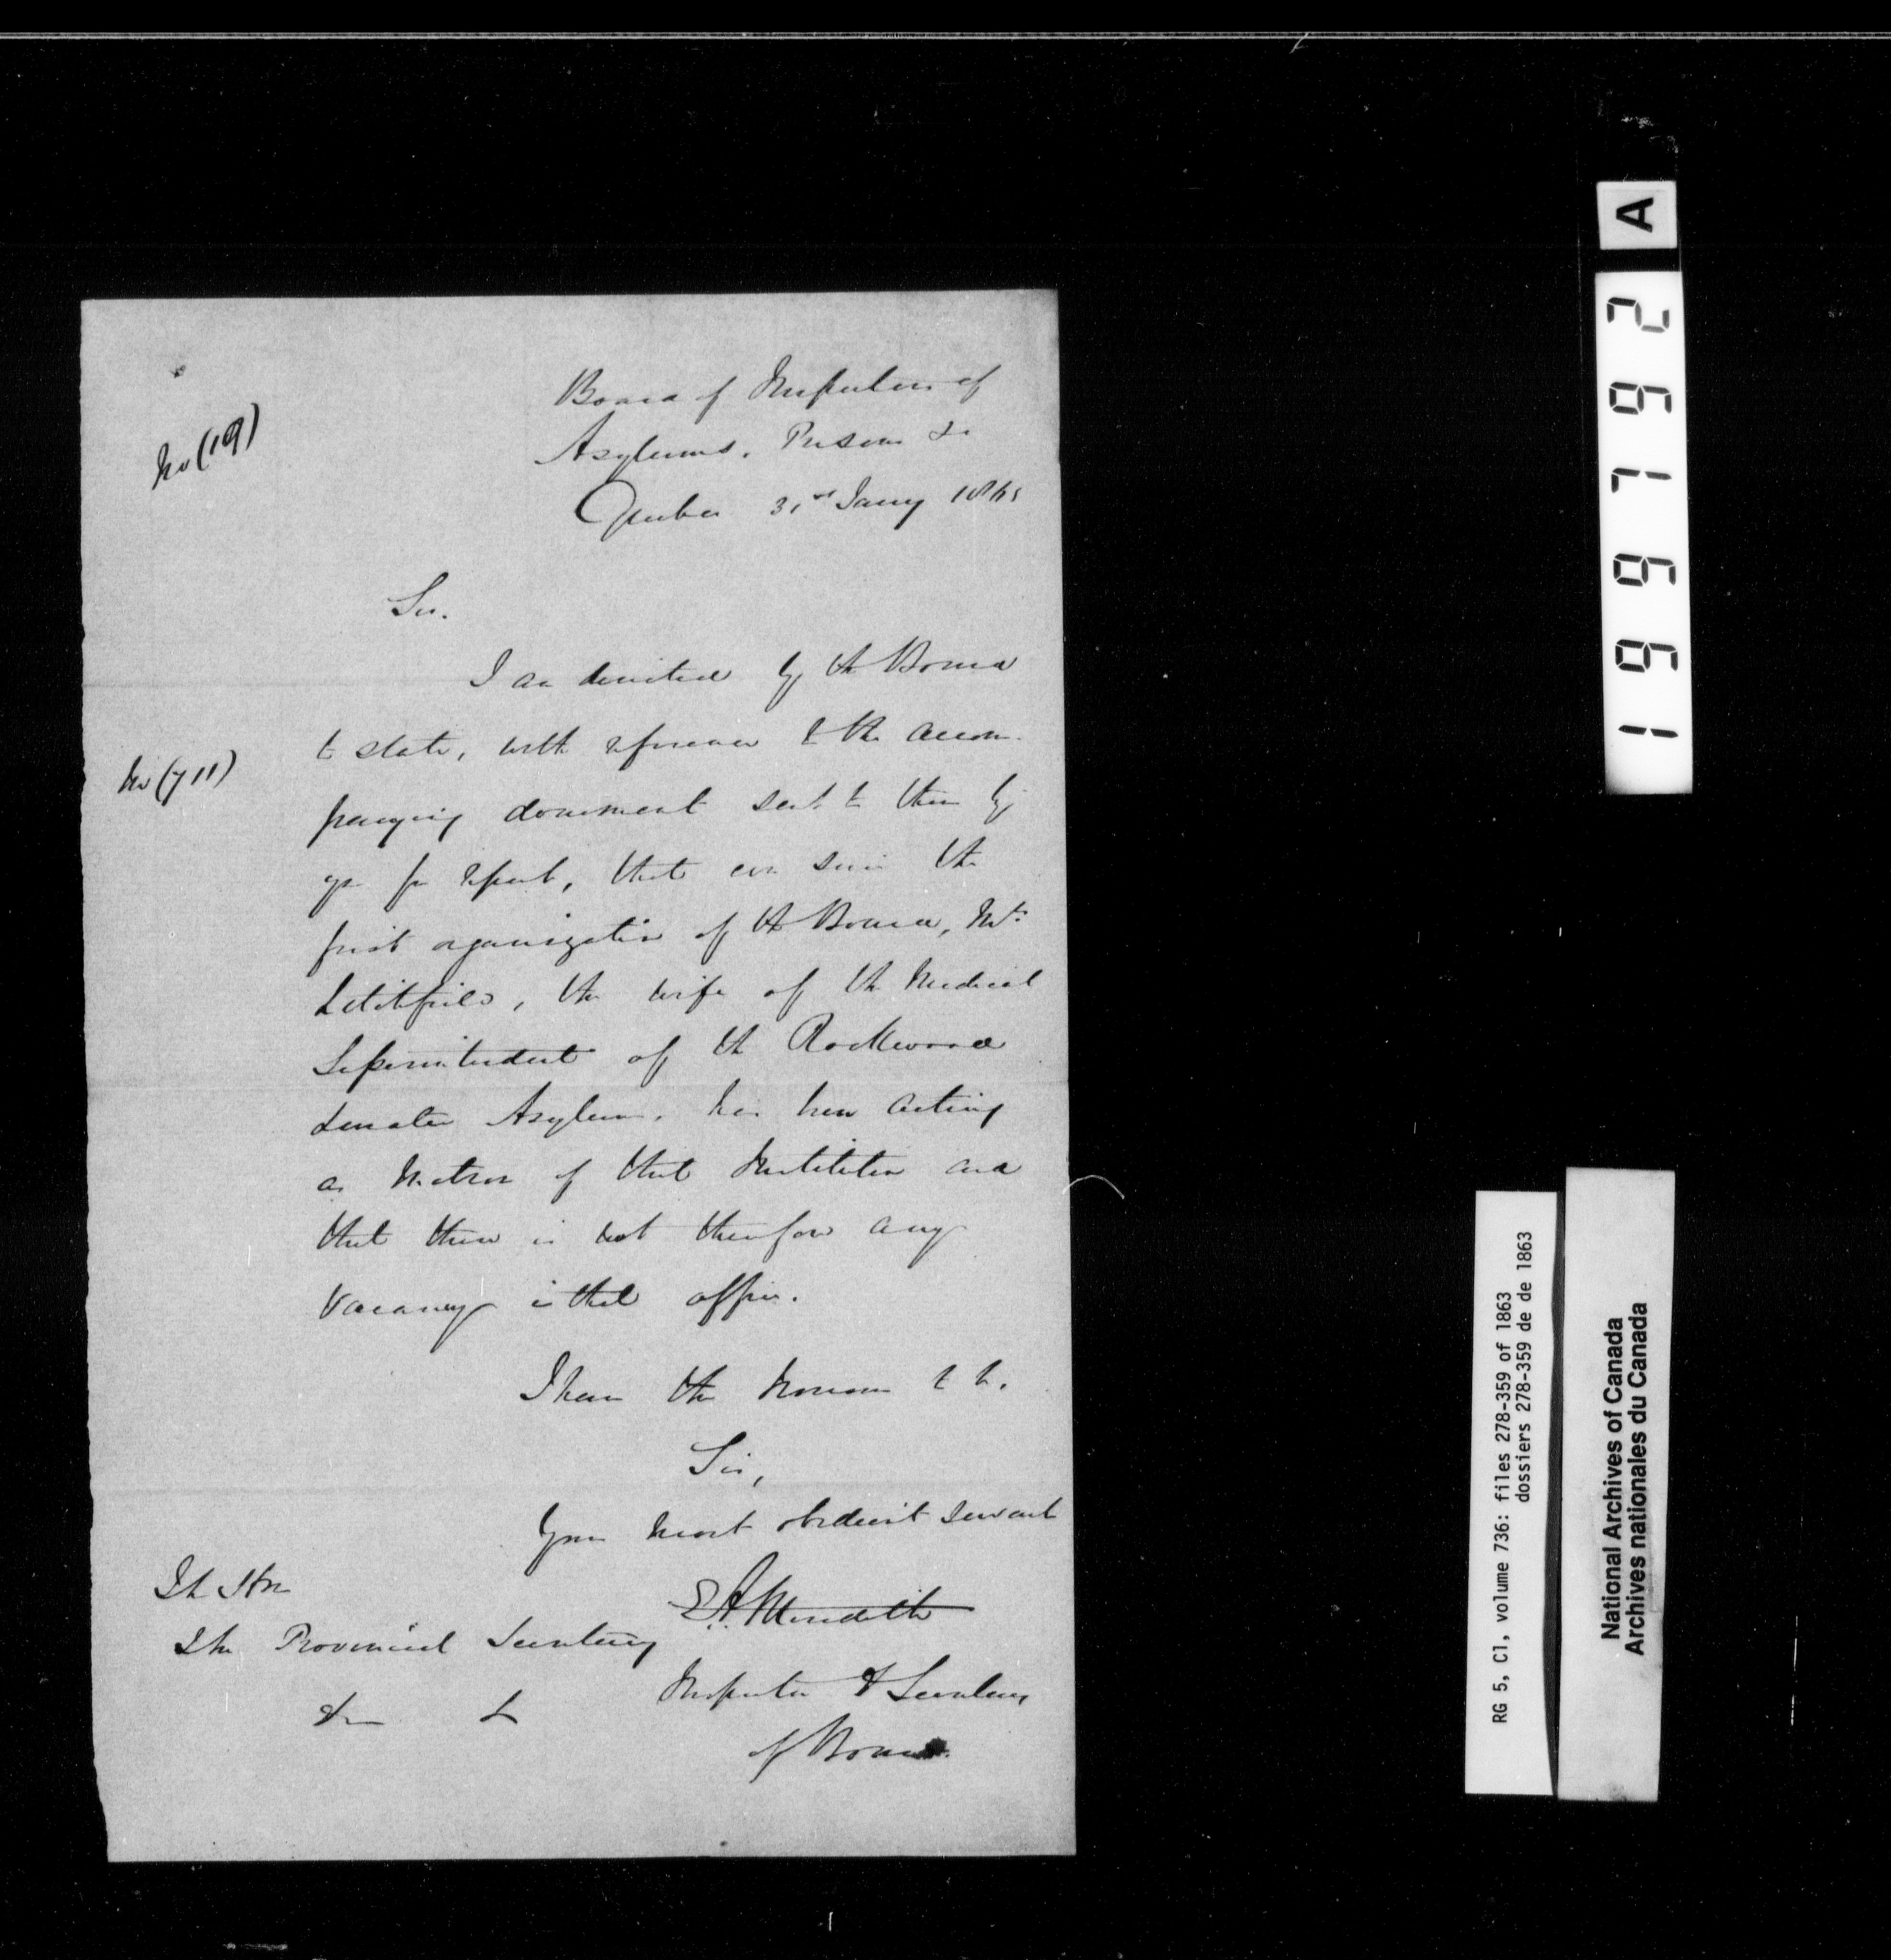 No (19)
Board of Inspectors of
Asylums, Prisons &c
Quebec 31st Jany 1863
Sir.
I am directed by the Board
to state, with reference to the accom-
No (711)
panying document sent to them by
you for report, that ever since the
first organization of the Board, Mrs
Litchfield, the wife of the Medical
Superintendent of the Rockwood
Lunatic Asylum, has been acting
as Matron of that Institution and
that there is not therefore any
vacancy in that office.
I have the honour to be,
Sir,
Your most obedient servant
E. A. Meredith
Inspector & Secretary
of Board.
The Hon
The Provincial Secretary
&c &c
A
1991662
RG 5, C1, volume 736: files 278-359 of 1863
dossiers 278-359 de de 1863
National Archives of Canada
Archives nationales du Canada